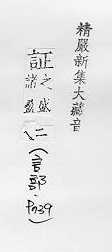 精嚴新集大藏音
証
之盛
諸
二(言部·P739)